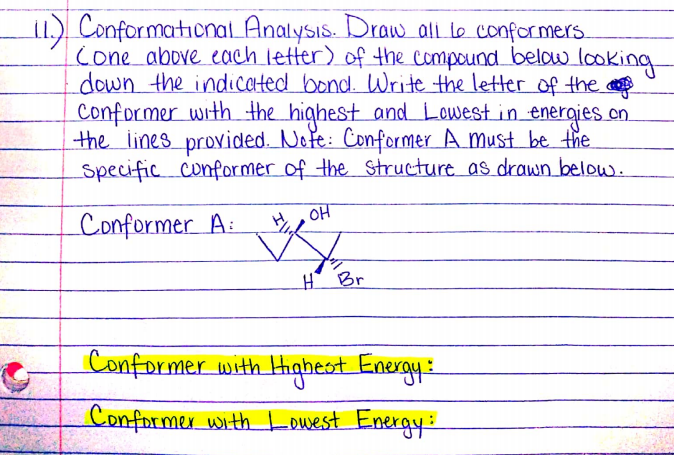 11.) Conformational Analysis. Draw all 6 conformers
(one above each letter) of the compound below looking
down the indicated bond. Write the letter of the
conformer with the highest and Lowest in energies on
the lines provided. Note: Conformer A must be the
specific conformer of the structure as drawn below.
Conformer A:
H OH
H Br
Conformer with Highest Energy:
Conformer with Lowest Energy: